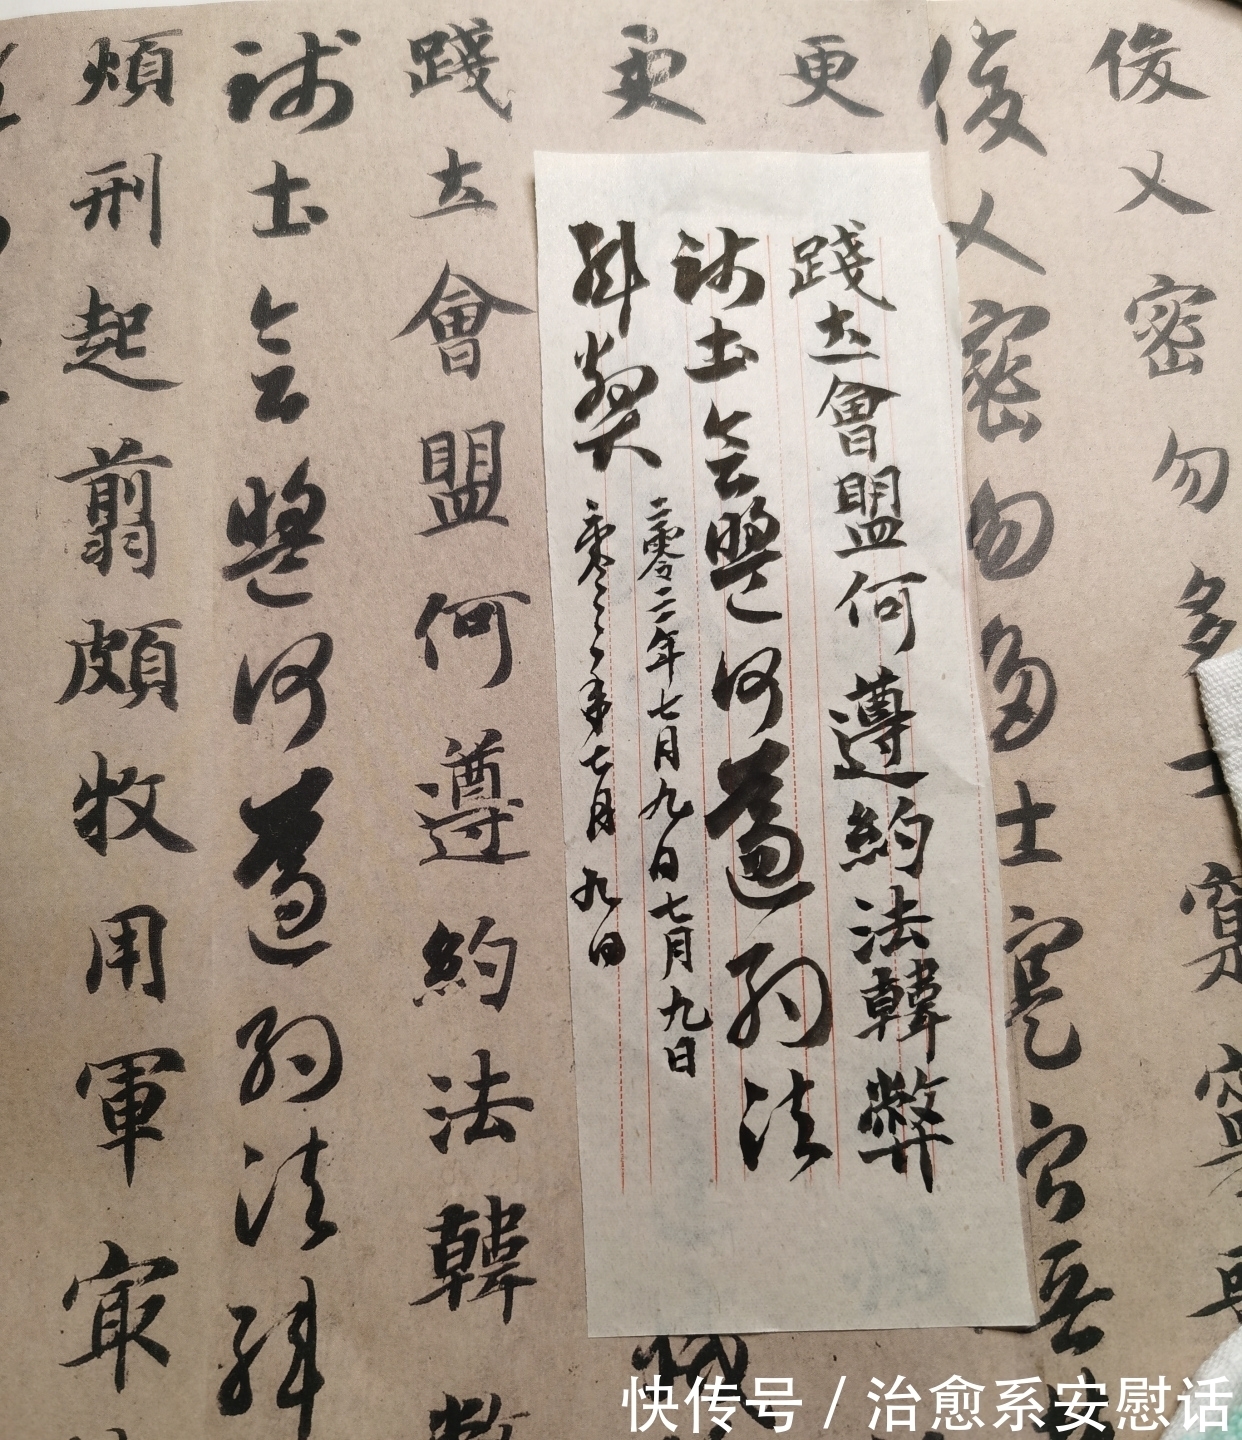 俊乂密勿多士寔寧晉
俊乂密勿多士寔寧晉楚
更
更
踐土會盟何遵約法韓弊
踐土會盟何遵約法韓
煩刑起翦頗牧用軍最
踐土會盟何遵約法韓弊
踐土會盟何遵約法
韓弊
二零二二年七月九日七月九日
二零二二年七月九日
快传号/治愈系安慰话